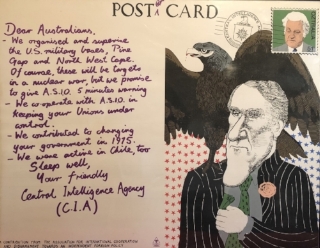 POST CARD
Dear Australians,
- We organised and supervise
the U.S. military bases, Pine
Gap and North West Cape.
Of course, these will be targets
in a nuclear war, but we promise
to give A.S.I.O. 5 minutes warning
- We co-operate with A.S.I.O. in
keeping your Unions under
control.
- We contributed to changing
your government in 1975.
- We were active in Chile, too
Sleep well,
Your friendly
Central Intelligence Agency
(C.I.A)
A CONTRIBUTION FROM THE ASSOCIATION FOR INTERNATIONAL COOPERATION
AND DISARMAMENT TOWARDS AN INDEPENDENT FOREIGN POLICY